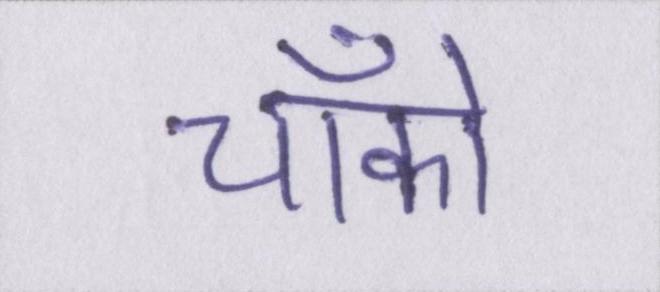 चोँको